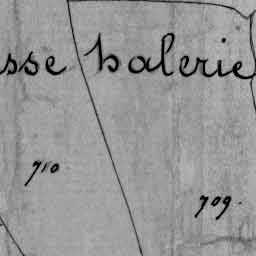 sse halerie
710
709.